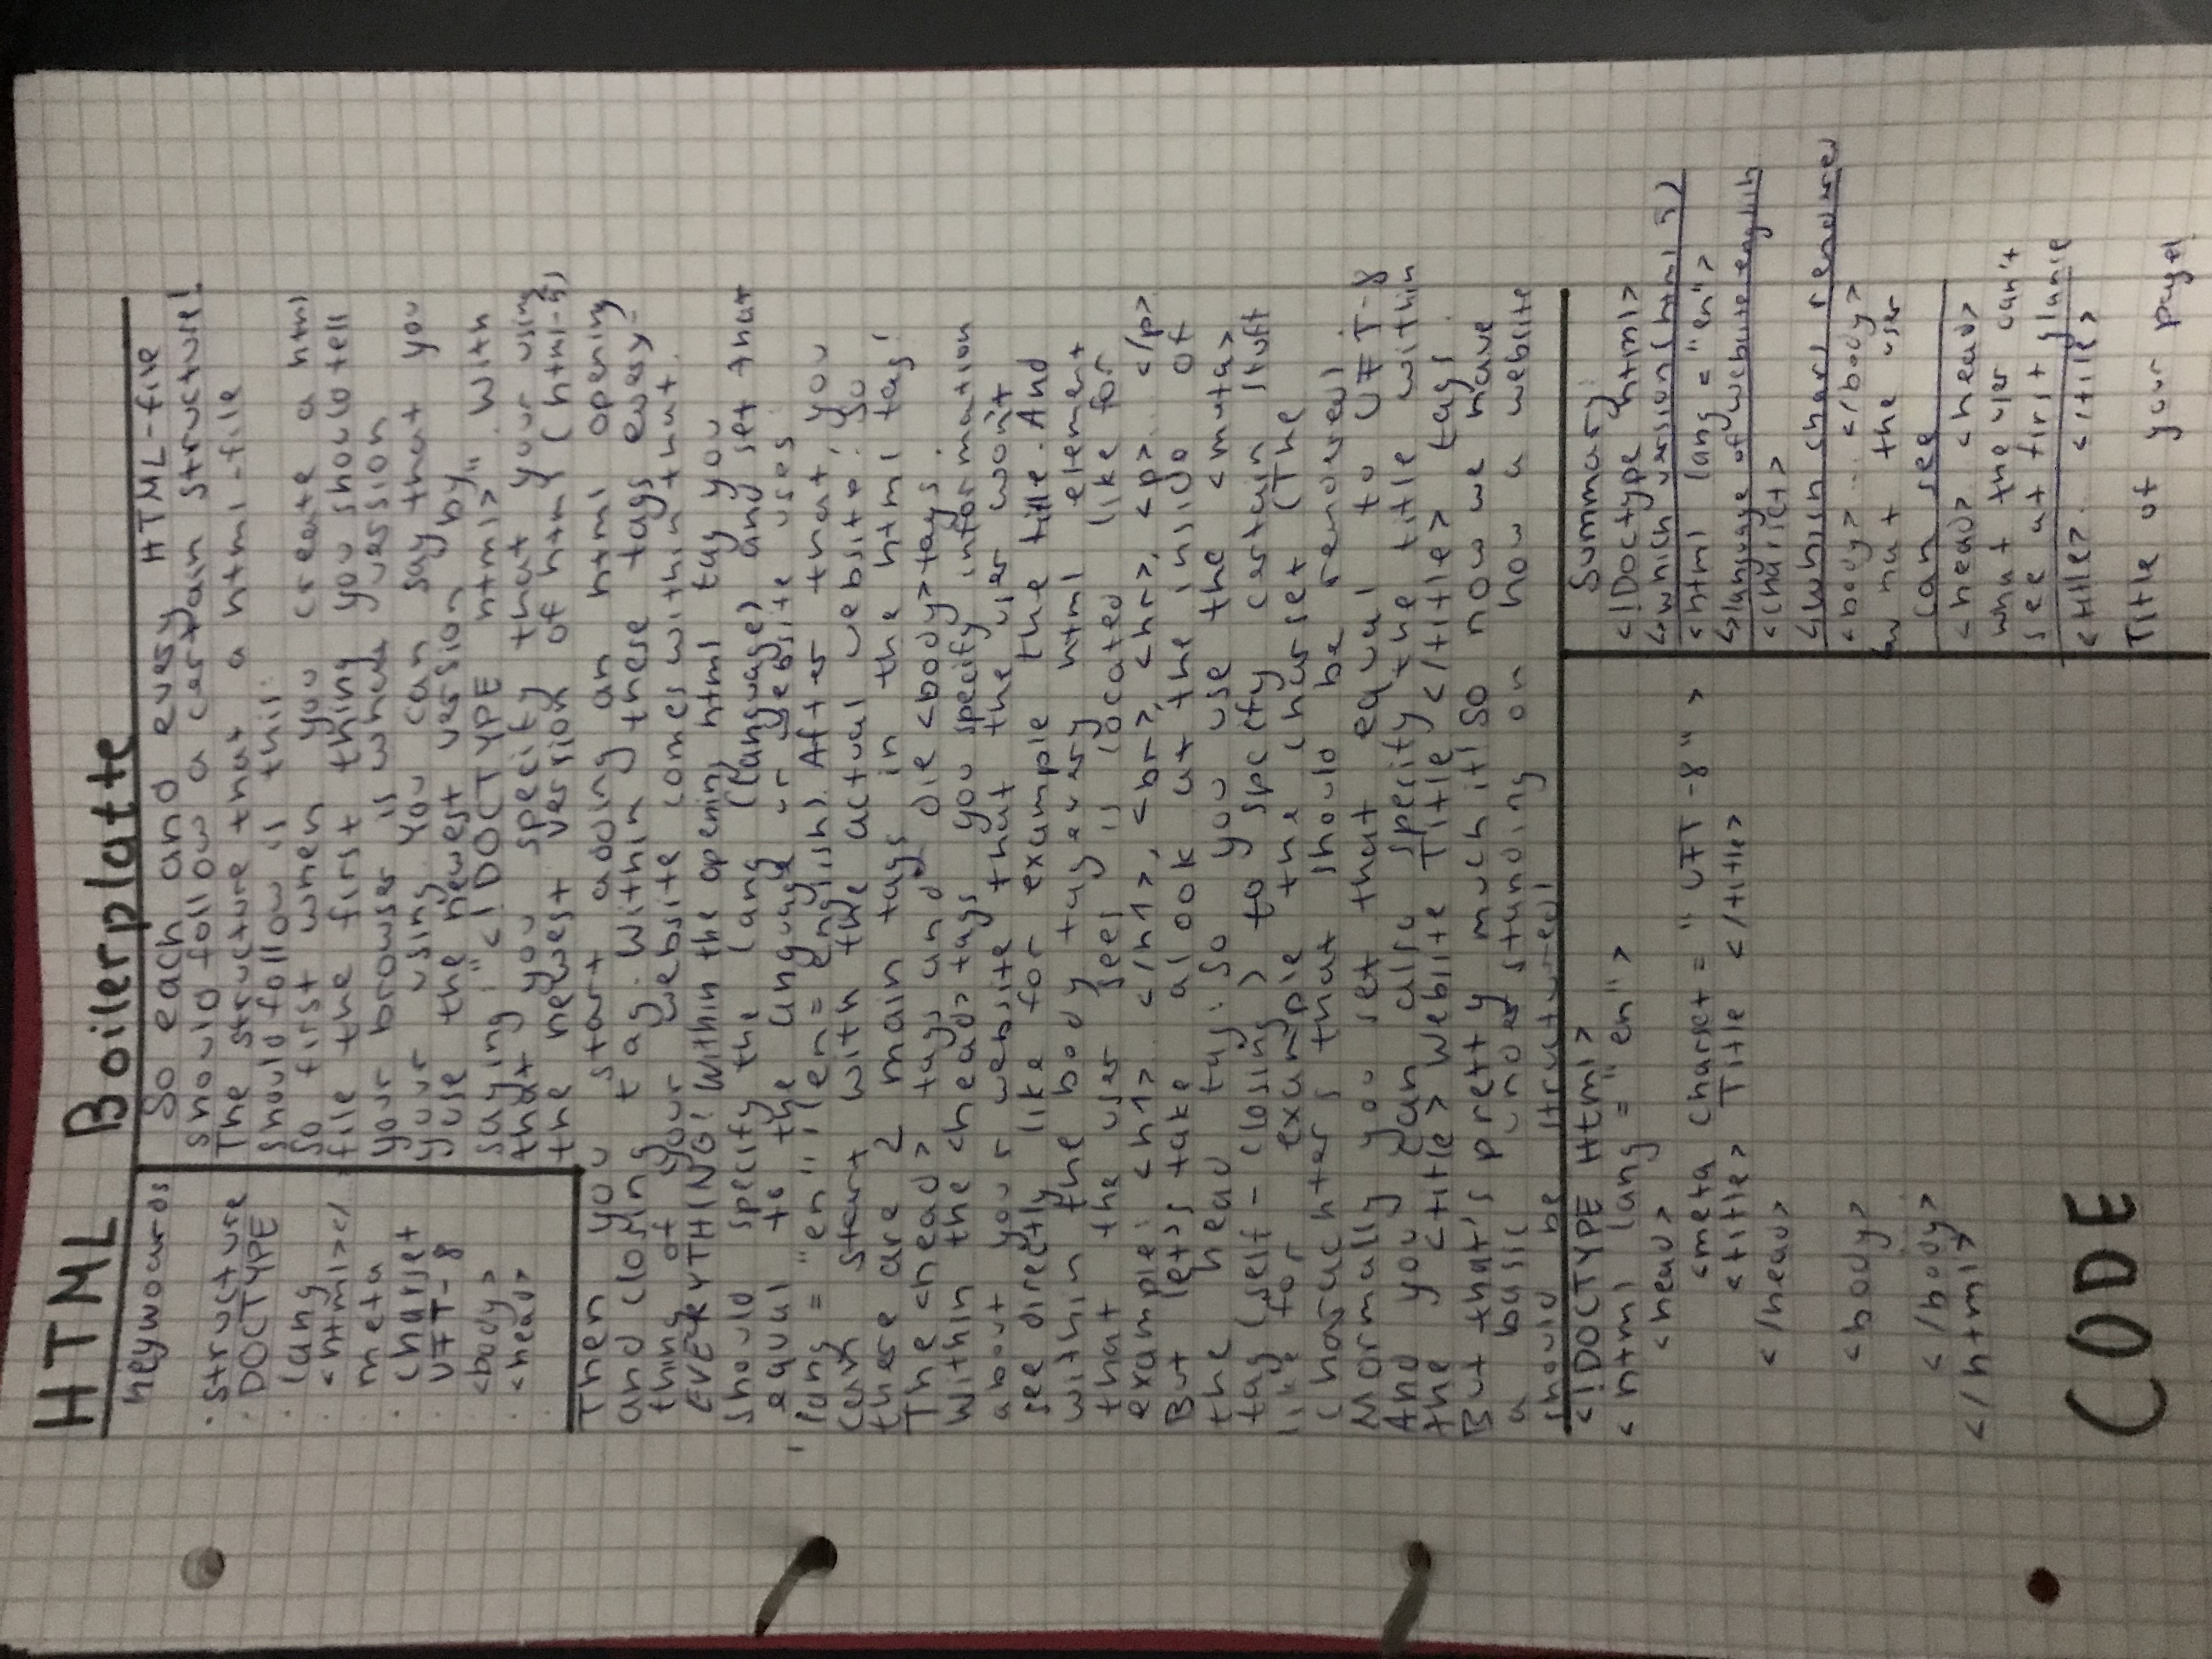 HTML Boilerplatte
keywoards
· structure
DOCTYPE
· lang
· <html></
meta
· charset
· UFT-8
· <body>
· <head>
So each and every HTML-file
should follow a certain structure!
The structure that a html-file
should follow is this:
So first when you create a html
file the first thing you should tell
your browser is what version
your using. You can say that you
use the newest version by
saying: "<!DOCTYPE html>". With
that you specify that your using
the newest version of html (html-5)
Then you start adding an html opening
and closing tag. Within these tags every-
thing of your website comes within that.
EVERYTHING! Within the opening html tag you
should specify the lang (language) and set that
equal to the language ur website uses
'lang = "en"' (en = english). After that, you
can start with the actual website. So
there are 2 main tags in the html tag!
The <head> tags and die <body> tags.
Within the <head> tags you specify information
about your website that the user won't
see directly like for example the title. And
within the body tag every html element
that the user sees is located like for
example: <h1>..</h1>, <br>, <hr>, <p>..</p>
But let's take a look at the inside of
the head tag: So you use the <meta>
tag (self-closing) to specify certain stuff
like for example the charset (The
charachters that should be rendered).
Normally you set that equal to UFT-8
And you can also specify the title within
the <title> Website Title </title> tags.
But that's pretty much it! So now we have
a basic understanding on how a website
should be structured!
<!DOCTYPE Html>
<html lang = "en">
<head>
<meta charset = "UFT-8">
<title> Title </title>
</head>
<body>
</body>
</html>
CODE
Summary:
<!Doctype html>
↳which version (html 5)
<html lang = "en">
↳language of website english
<charset>
↳which chars rendered
<body>...</body>
what the user
can see
<head> <head>
what the user can't
see at first glance
<title>. </title>
Title of your page!